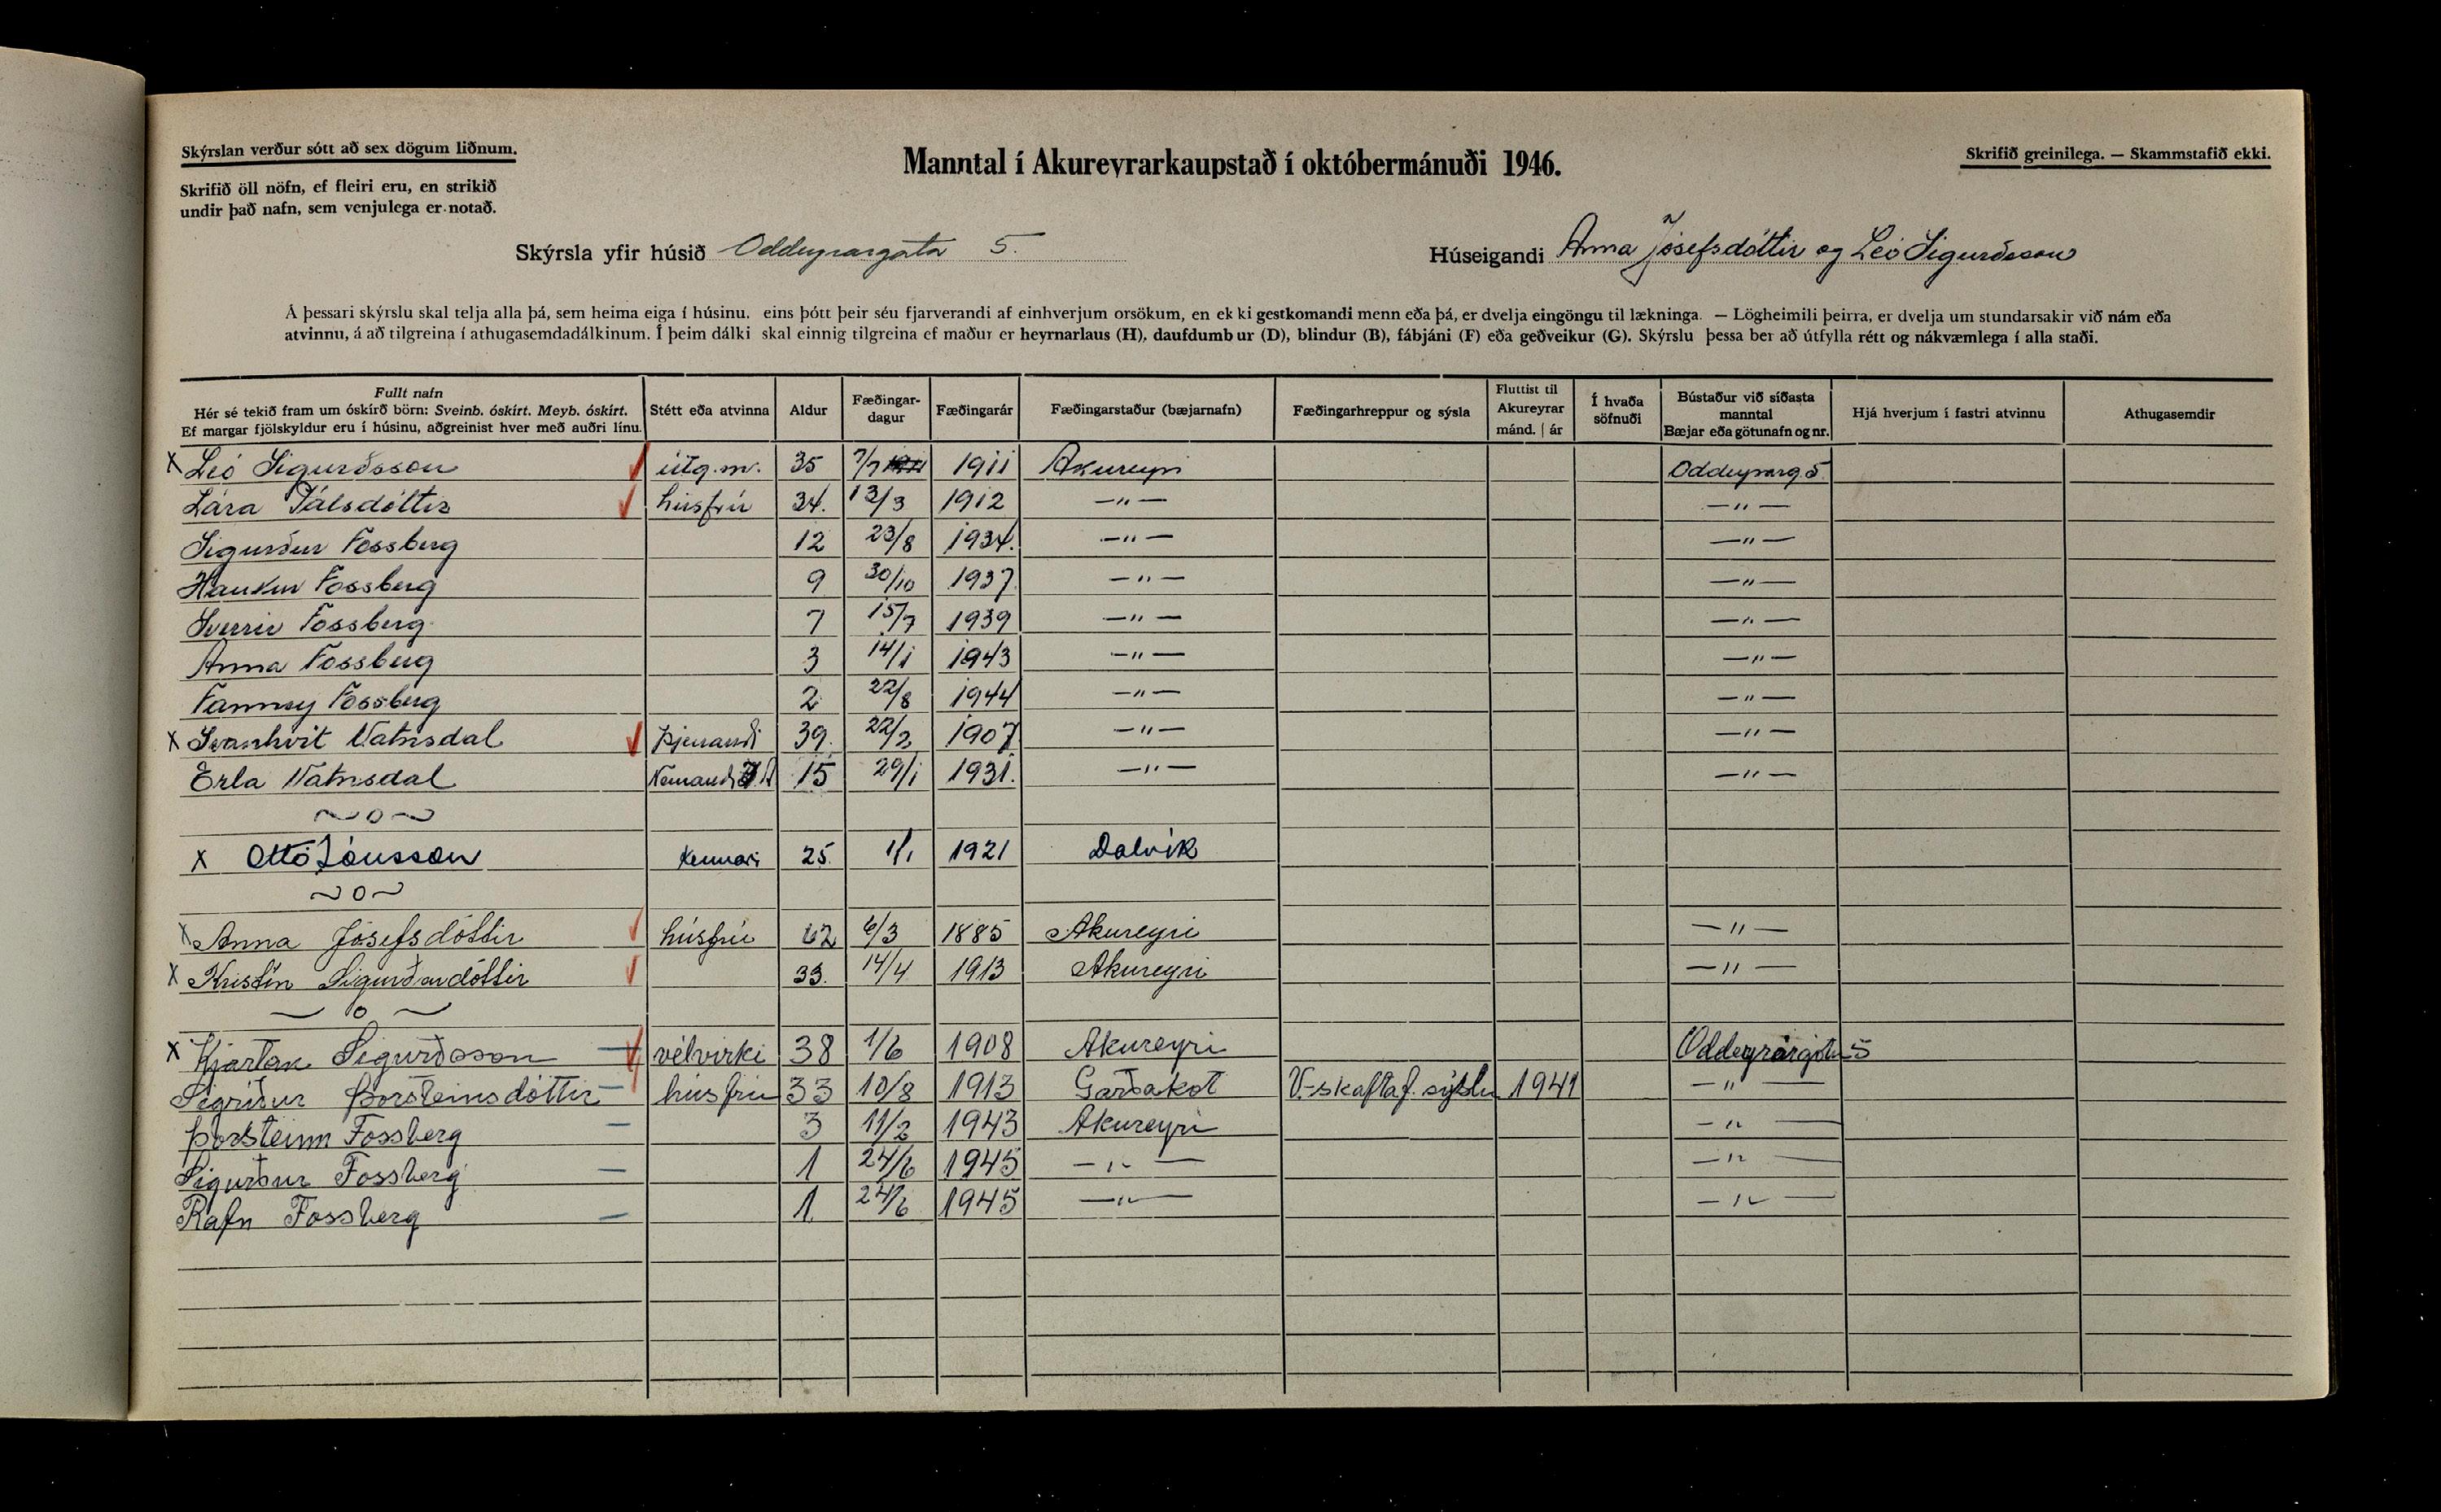 Skýrslan verður sótt að sex dögum liðnum.
Manntal í Akureyrarkaupstað í októbermánuði 1946.
Skrifið greinilega. — Skammstafið ekki.
Skrifið öll nöfn, ef fleiri eru, en strikið
undir það nafn, sem venjulega er notað.
Skýrsla yfir húsið Oddeyrargata 5.
Húseigandi Anna Jósefsdóttir og Leó Sigurðsson
Á þessari skýrslu skal telja alla þá, sem heima eiga í húsinu, eins þótt þeir séu fjarverandi af einhverjum orsökum, en ekki gestkomandi menn eða þá, er dvelja eingöngu til lækninga. — Lögheimili þeirra, er dvelja um stundarsakir við nám eða
atvinnu, á að tilgreina í athugasemdadálkinum. Í þeim dálki skal einnig tilgreina ef maður er heyrnarlaus (H), daufdumbur (D), blindur (B), fábjáni (F) eða geðveikur (G). Skýrslu þessa ber að útfylla rétt og nákvæmlega í alla staði.
Fullt nafn
Hér sé tekið fram um óskírð börn: Sveinb. óskírt. Meyb. óskírt.
Ef margar fjölskyldur eru í húsinu, aðgreinist hver með auðri línu.
Stétt eða atvinna
Aldur
Fæðingar-
dagur
Fæðingarár
Fæðingarstaður (bæjarnafn)
Fæðingarhreppur og sýsla
Fluttist til
Akureyrar
mánd. | ár
Í hvaða
söfnuði
Bústaður við síðasta
manntal
Bæjar eða götunafn og nr.
Hjá hverjum í fastri atvinnu
Athugasemdir
x Leó Sigurðsson útg.m. 35 7/7 1911 Akureyri Oddeyrarg 5
Lára Pálsdóttir húsfrú 34. 13/3 1912 —"— —"—
Sigurður Fossberg 12 23/8 1934. —"— —"—
Haukur Fossberg 9 30/10 1937 —"— —"—
Sverrir Fossberg 7 15/7 1939 —"— —"—
Anna Fossberg 3 14/1 1943 —"— —"—
Fanney Fossberg 2 22/8 1944 —"— —"—
x Svanhvít Vatnsdal Þjenandi 39. 22/2 1907 —"— —"—
Erla Vatnsdal Nemandi 15 29/1 1931. —"— —"—
~o~
x Ottó Jónsson Kennari 25. 1/1 1921 Dalvík
~o~
x Anna Jósefsdóttir húsfrú 62 6/3 1885 Akureyri —"—
x Kristín Sigurðardóttir 33. 14/4 1913 Akureyri —"—
~o~
x Kjartan Sigurðsson vélvirki 38 1/6 1908 Akureyri Oddeyrargötu 5
Sigríður Þorsteinsdóttir húsfrú 33 10/8 1913 Garðakot V-skaftaf. sýslu 1941 —"—
Þorsteinn Fossberg 3 11/2 1943 Akureyri —"—
Sigurður Fossberg 1 24/6 1945 —"— —"—
Rafn Fossberg 1 24/6 1945 —"— —"—